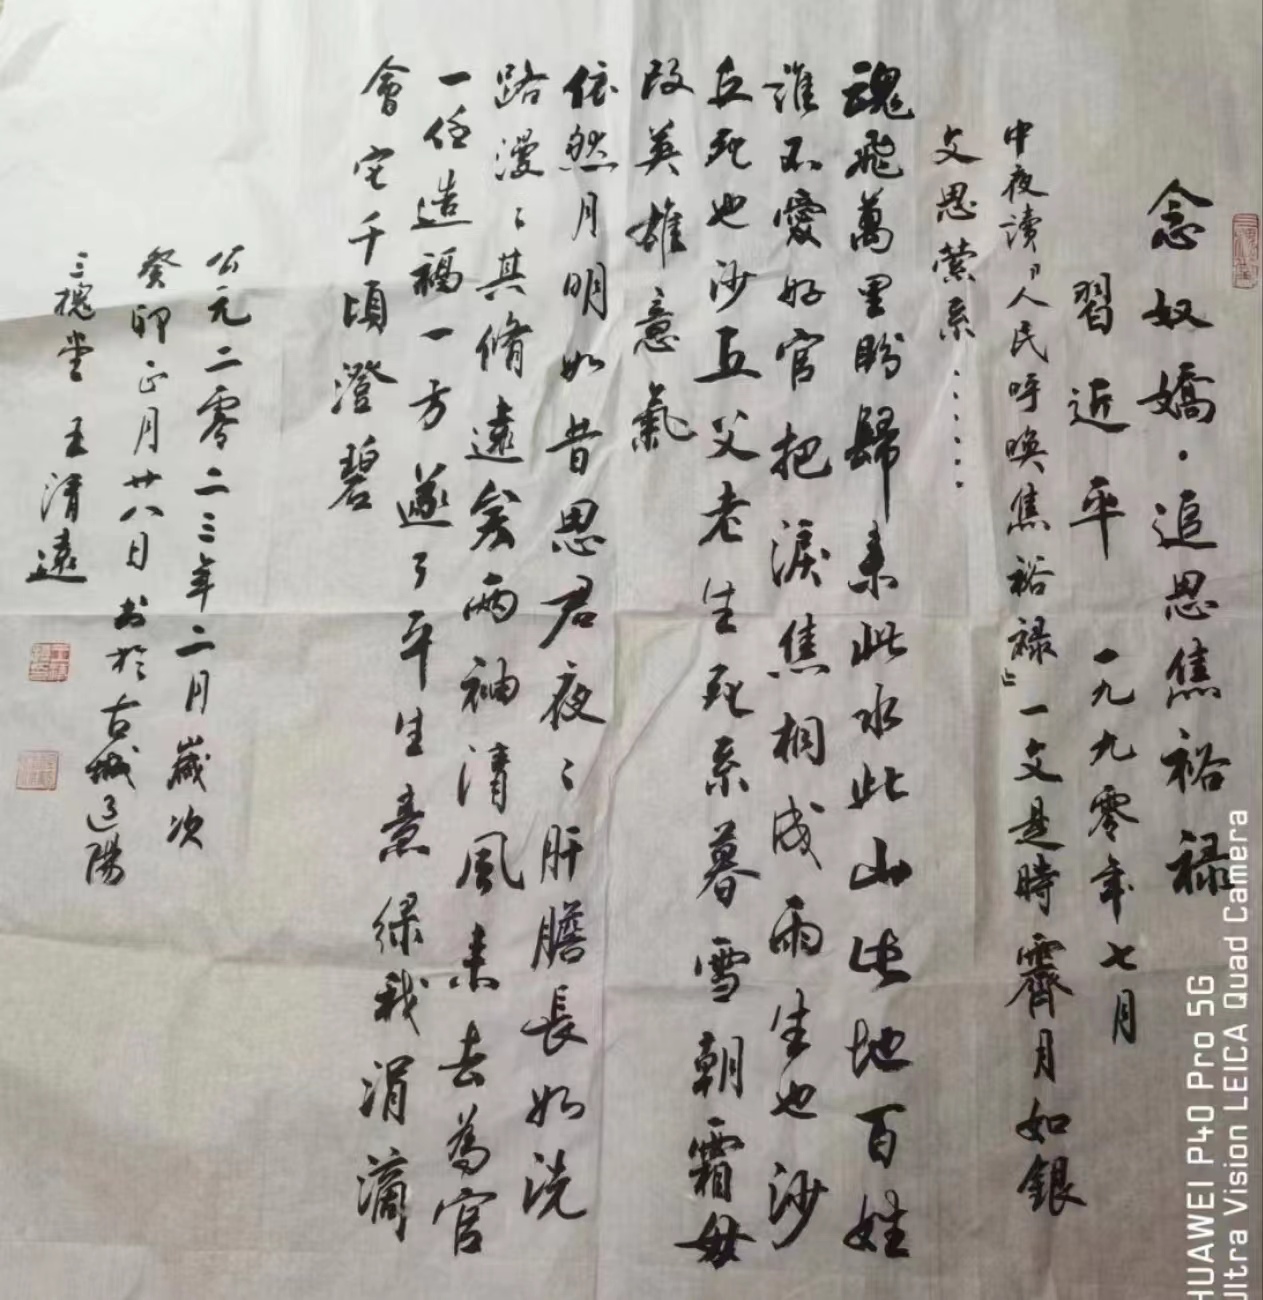 念奴嬌·追思焦裕禄
習近平 一九九零年七月
中夜读「人民呼唤焦裕禄」一文是時霽月如銀
文思萦系......
魂飛萬里盼歸来此水此山此地百姓
誰不愛好官把淚焦桐成雨生也沙
丘死也沙丘父老生死系暮雪朝霜毋
改英雄意氣
依然月明如昔思君夜〻肝膽長如洗
路漫〻其脩遠矣兩袖清風来去為官
一任造福一方遂了平生意绿我涓滴
會它千頃澄碧
公元二零二三年二月歲次
癸卯正月廿八日书於古城辽陽
三槐堂 王清遠
HUAWEI P40 Pro 5G
Ultra Vision LEICA Quad Camera